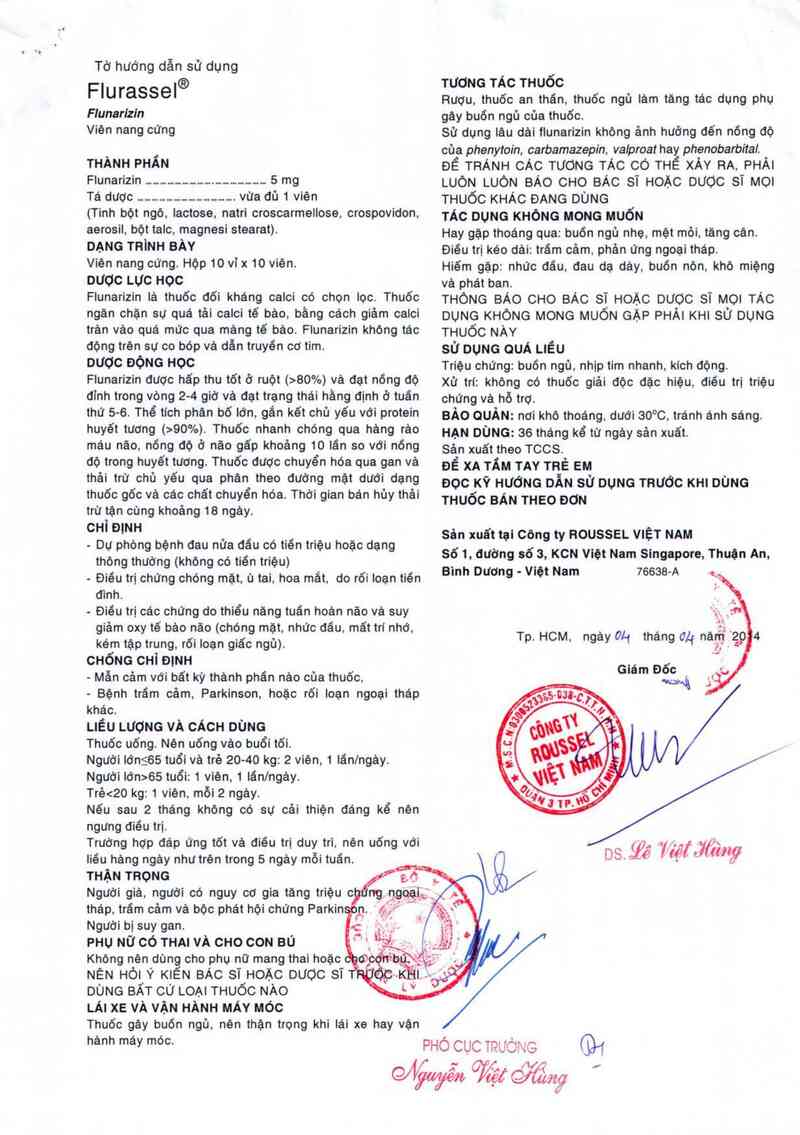 Tờ hướng dẫn sử dụng
Flurassel®
Flunarizin
Viên nang cứng
THÀNH PHẦN
Flunarizin _____________________ 5 mg
Tá dược ________________ vừa đủ 1 viên
(Tinh bột ngô, lactose, natri croscarmellose, crospovidon,
aerosil, bột talc, magnesi stearat).
DẠNG TRÌNH BÀY
Viên nang cứng. Hộp 10 vỉ x 10 viên.
DƯỢC LỰC HỌC
Flunarizin là thuốc đối kháng calci có chọn lọc. Thuốc
ngăn chặn sự quá tải calci tế bào, bằng cách giảm calci
tràn vào quá mức qua màng tế bào. Flunarizin không tác
động trên sự co bóp và dẫn truyền cơ tim.
DƯỢC ĐỘNG HỌC
Flunarizin được hấp thu tốt ở ruột (>80%) và đạt nồng độ
đỉnh trong vòng 2-4 giờ và đạt trạng thái hằng định ở tuần
thứ 5-6. Thể tích phân bố lớn, gắn kết chủ yếu với protein
huyết tương (>90%). Thuốc nhanh chóng qua hàng rào
máu não, nồng độ ở não gấp khoảng 10 lần so với nồng
độ trong huyết tương. Thuốc được chuyển hóa qua gan và
thải trừ chủ yếu qua phân theo đường mật dưới dạng
thuốc gốc và các chất chuyển hóa. Thời gian bán hủy thải
trừ tận cùng khoảng 18 ngày.
CHỈ ĐỊNH
- Dự phòng bệnh đau nửa đầu có tiền triệu hoặc dạng
thông thường (không có tiền triệu)
- Điều trị chứng chóng mặt, ù tai, hoa mắt, do rối loạn tiền
đình.
- Điều trị các chứng do thiểu năng tuần hoàn não và suy
giảm oxy tế bào não (chóng mặt, nhức đầu, mất trí nhớ,
kém tập trung, rối loạn giấc ngủ).
CHỐNG CHỈ ĐỊNH
- Mẫn cảm với bất kỳ thành phần nào của thuốc,
- Bệnh trầm cảm, Parkinson, hoặc rối loạn ngoại tháp
khác.
LIỀU LƯỢNG VÀ CÁCH DÙNG
Thuốc uống. Nên uống vào buổi tối.
Người lớn≤65 tuổi và trẻ 20-40 kg: 2 viên, 1 lần/ngày.
Người lớn>65 tuổi: 1 viên, 1 lần/ngày.
Trẻ<20 kg: 1 viên, mỗi 2 ngày.
Nếu sau 2 tháng không có sự cải thiện đáng kể nên
ngưng điều trị.
Trường hợp đáp ứng tốt và điều trị duy trì, nên uống với
liều hàng ngày như trên trong 5 ngày mỗi tuần.
THẬN TRỌNG
Người già, người có nguy cơ gia tăng triệu chứng ngoại
tháp, trầm cảm và bộc phát hội chứng Parkinson.
Người bị suy gan.
PHỤ NỮ CÓ THAI VÀ CHO CON BÚ
Không nên dùng cho phụ nữ mang thai hoặc cho con bú.
NÊN HỎI Ý KIẾN BÁC SĨ HOẶC DƯỢC SĨ TRƯỚC KHI
DÙNG BẤT CỨ LOẠI THUỐC NÀO
LÁI XE VÀ VẬN HÀNH MÁY MÓC
Thuốc gây buồn ngủ, nên thận trọng khi lái xe hay vận
hành máy móc.
TƯƠNG TÁC THUỐC
Rượu, thuốc an thần, thuốc ngủ làm tăng tác dụng phụ
gây buồn ngủ của thuốc.
Sử dụng lâu dài flunarizin không ảnh hưởng đến nồng độ
của phenytoin, carbamazepin, valproat hay phenobarbital.
ĐỂ TRÁNH CÁC TƯƠNG TÁC CÓ THỂ XẢY RA, PHẢI
LUÔN LUÔN BÁO CHO BÁC SĨ HOẶC DƯỢC SĨ MỌI
THUỐC KHÁC ĐANG DÙNG
TÁC DỤNG KHÔNG MONG MUỐN
Hay gặp thoáng qua: buồn ngủ nhẹ, mệt mỏi, tăng cân.
Điều trị kéo dài: trầm cảm, phản ứng ngoại tháp.
Hiếm gặp: nhức đầu, đau dạ dày, buồn nôn, khô miệng
và phát ban.
THÔNG BÁO CHO BÁC SĨ HOẶC DƯỢC SĨ MỌI TÁC
DỤNG KHÔNG MONG MUỐN GẶP PHẢI KHI SỬ DỤNG
THUỐC NÀY
SỬ DỤNG QUÁ LIỀU
Triệu chứng: buồn ngủ, nhịp tim nhanh, kích động.
Xử trí: không có thuốc giải độc đặc hiệu, điều trị triệu
chứng và hỗ trợ.
BẢO QUẢN: nơi khô thoáng, dưới 30°C, tránh ánh sáng.
HẠN DÙNG: 36 tháng kể từ ngày sản xuất.
Sản xuất theo TCCS.
ĐỂ XA TẦM TAY TRẺ EM
ĐỌC KỸ HƯỚNG DẪN SỬ DỤNG TRƯỚC KHI DÙNG
THUỐC BÁN THEO ĐƠN
Sản xuất tại Công ty ROUSSEL VIỆT NAM
Số 1, đường số 3, KCN Việt Nam Singapore, Thuận An,
Bình Dương - Việt Nam 76638-A
Tp. HCM, ngày 04 tháng 04 năm 2014
Giám Đốc
CÔNG TY
ROUSSEL
VIỆT NAM
QUẬN 3 TP. HỒ CHÍ MINH
DS. Lê Việt Hùng
BỘ Y TẾ
PHÓ CỤC TRƯỞNG
Nguyễn Việt Hùng